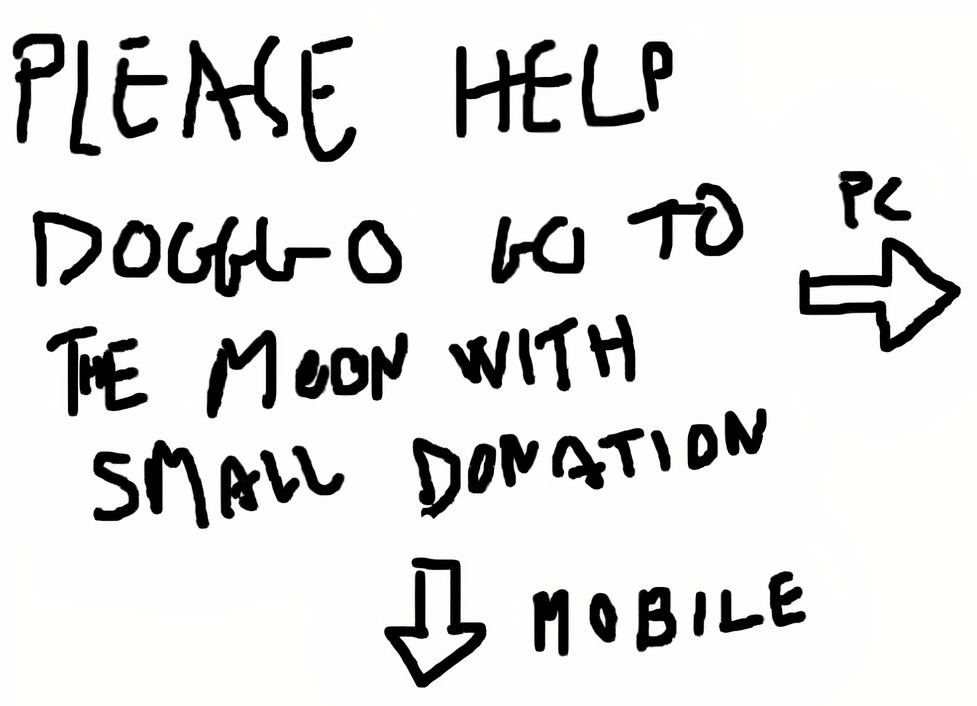 PLEASE HELP
DOGGO GO TO
PC
THE MOON WITH
SMALL DONATION
MOBILE